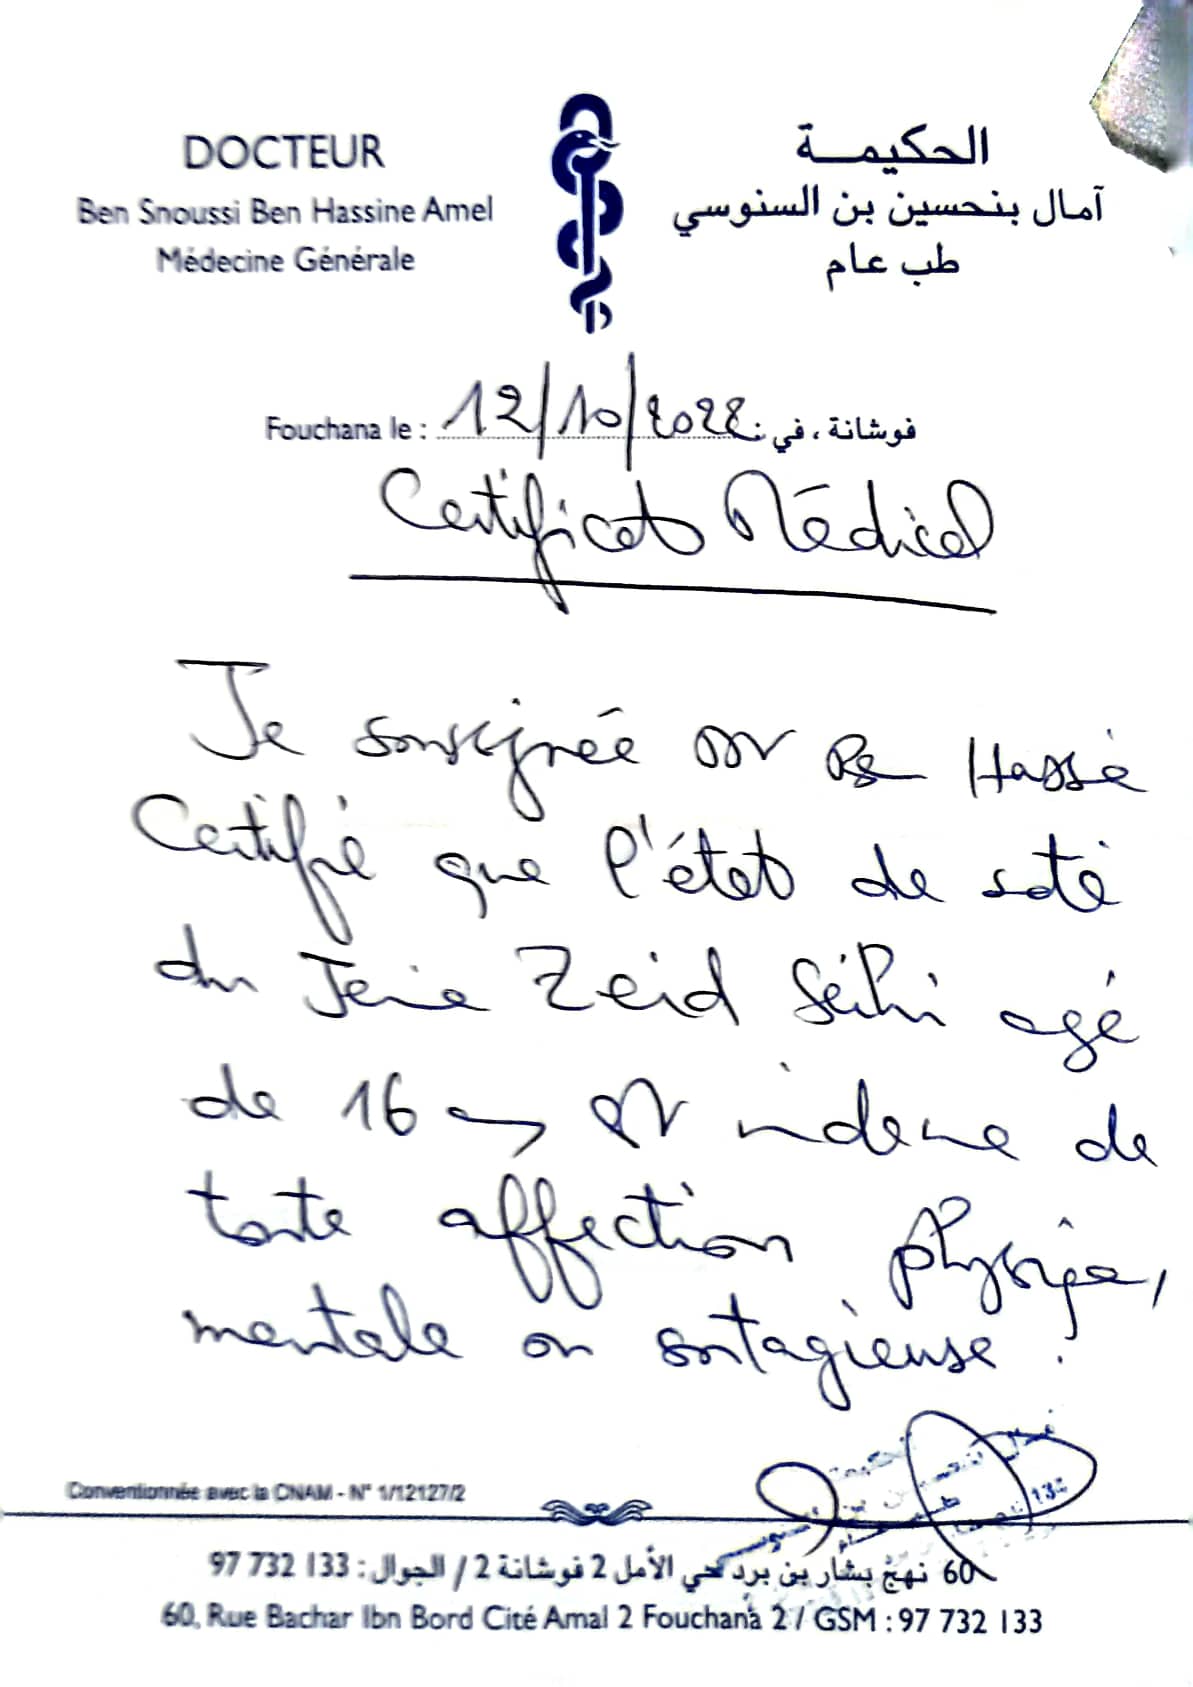 DOCTEUR
Ben Snoussi Ben Hassine Amel
Médecine Générale
الحكيمة
آمال بنحسين بن السنوسي
طب عام
Fouchana le : 12/10/2022 فوشانة ، في :
Certificat Médical
Je soussignée Dr Ben Hassine
Certifie que l'état de santé
du Jeune Zeid agé
de 16 ans est indemne de
toute affection physique,
mentale ou contagieuse.
Conventionnée avec la CNAM - N° 1/12127/2
60 نهج بشار بن برد حي الأمل 2 فوشانة 2 / الجوال : 133 732 97
60, Rue Bachar Ibn Bord Cité Amal 2 Fouchana 2 / GSM : 97 732 133